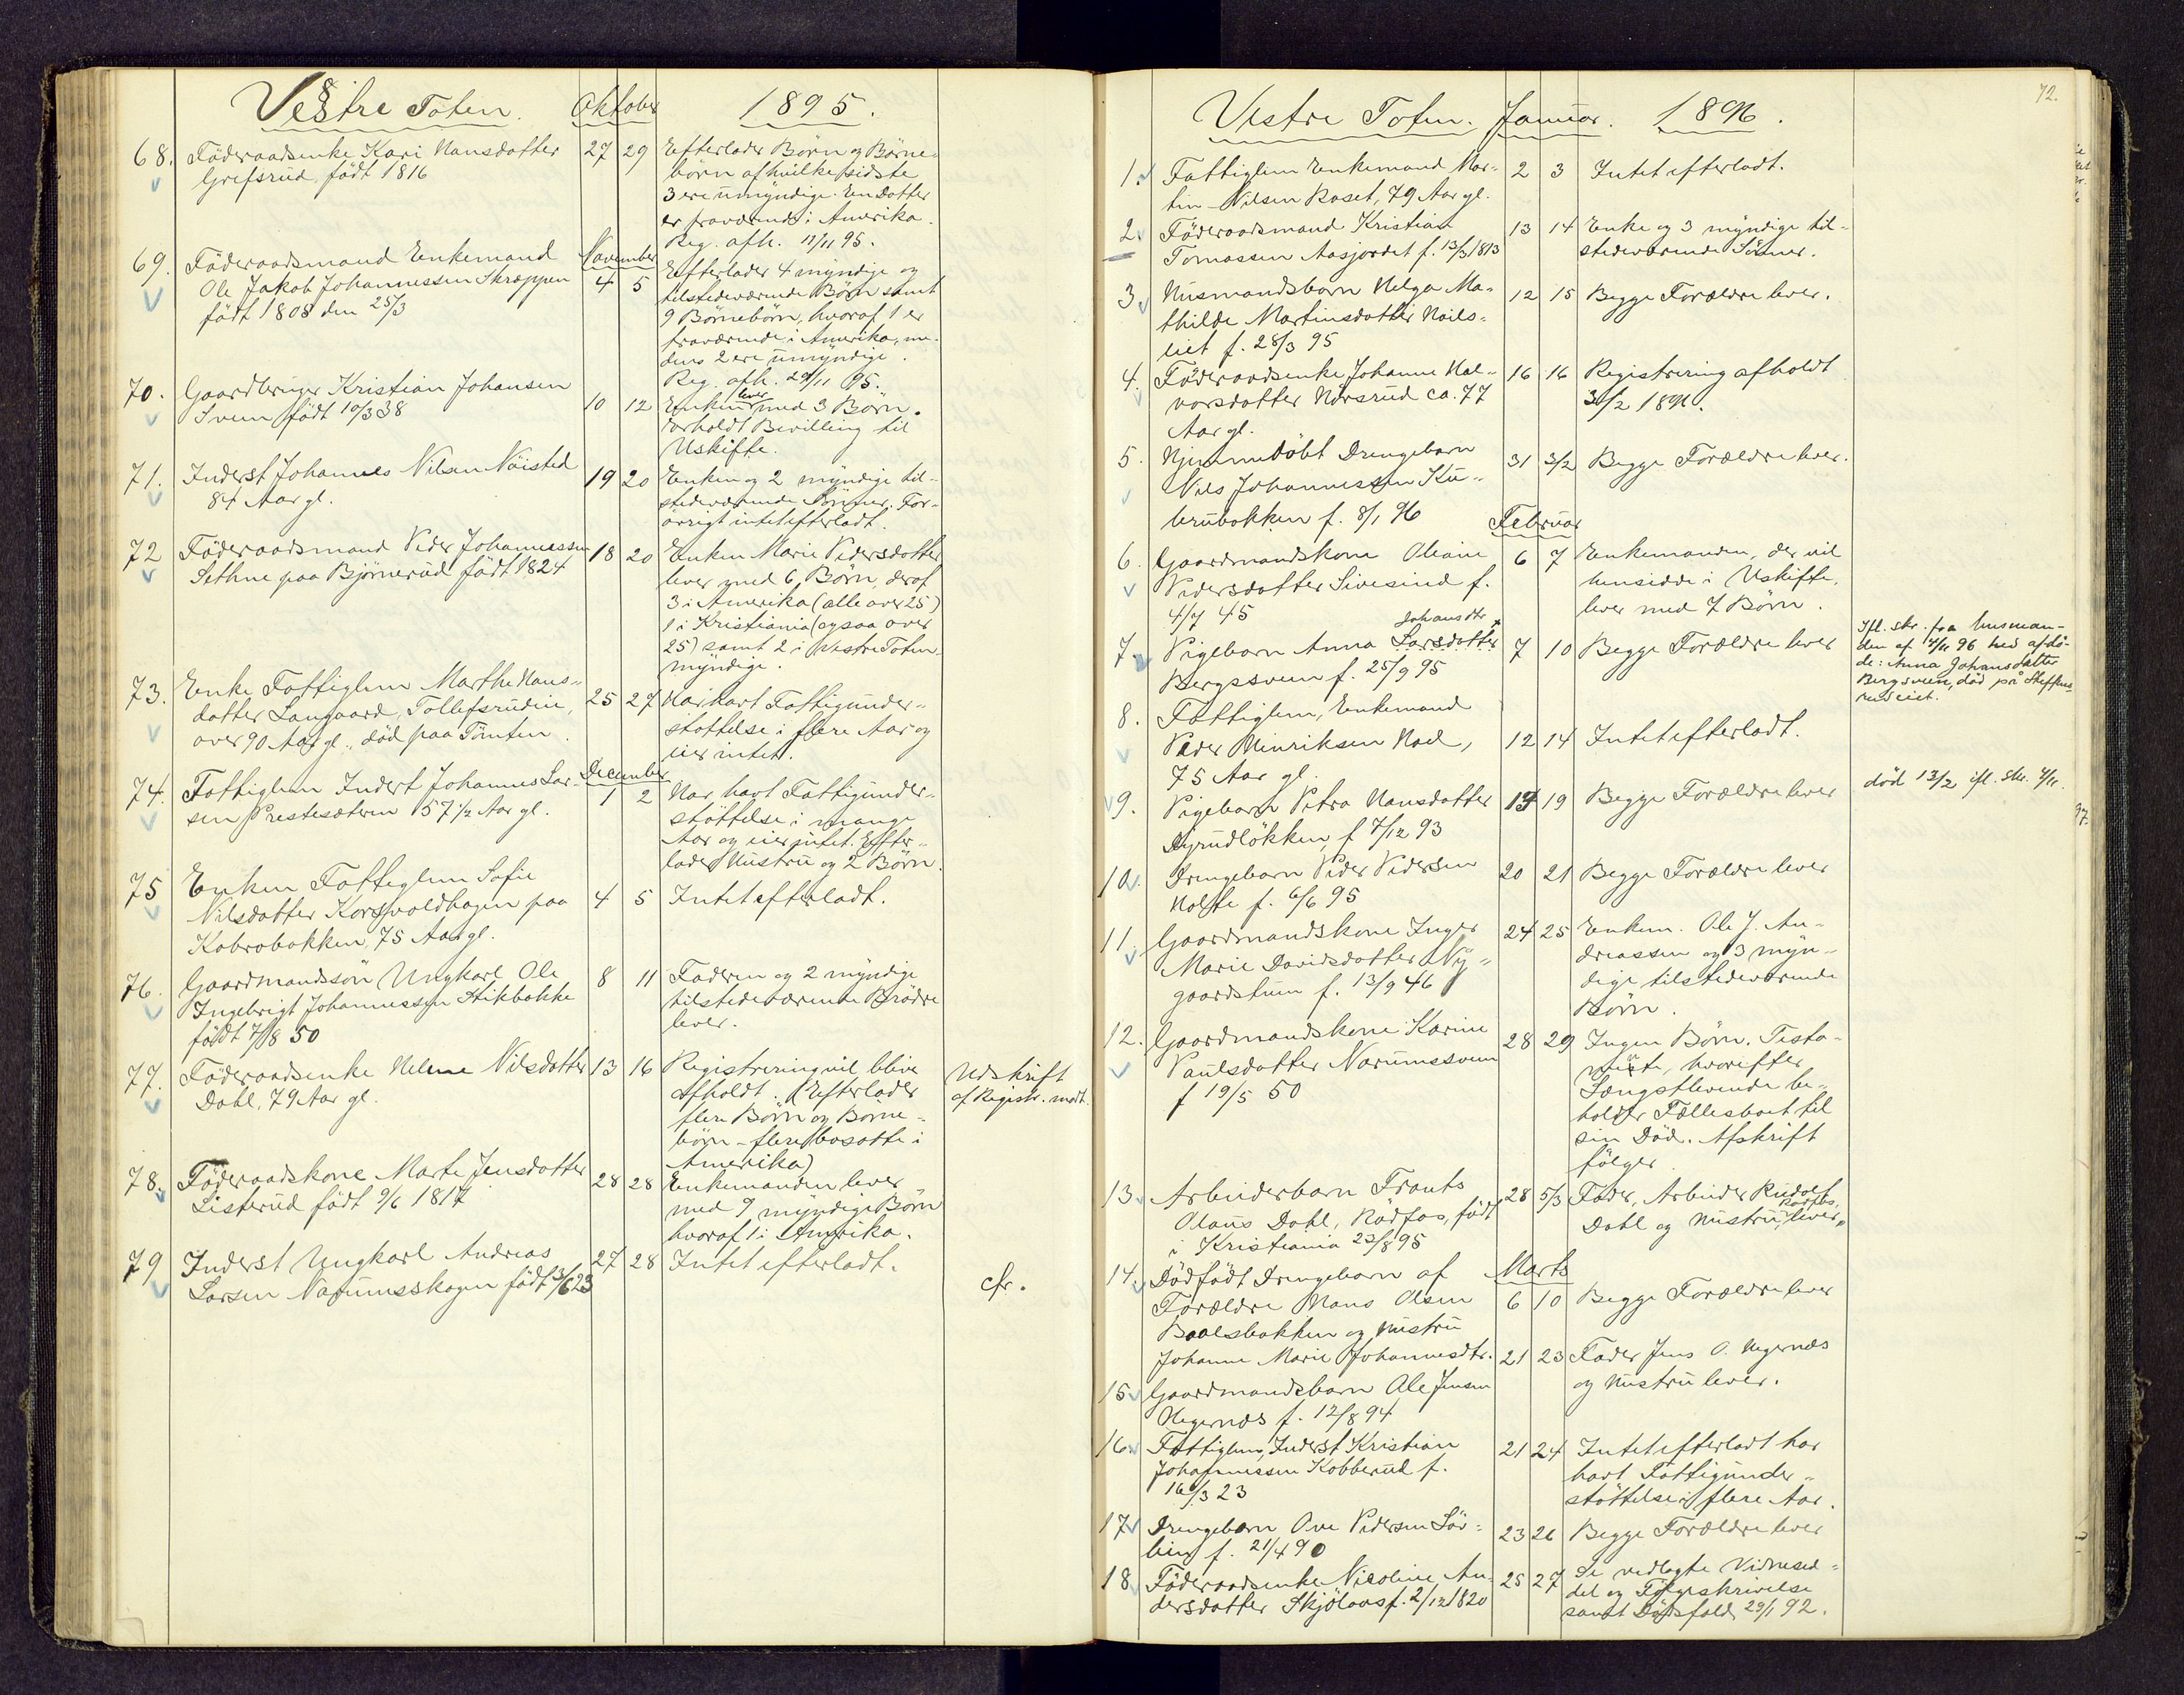 Vestre Toten. Oktober 1895.
68. Föderaadsenke Kari Hansdatter 27 29 Efterlader Börn og Börne-
Grefsrud, født 1816 börn af hvilke sidste
3 ere umyndige. En Datter
er fraværende i Amerika.
Reg. afh. 11/11 95.
69. Föderaadsmand Enkemand November
Ole Jakob Johannessen Skræppen 4 5 Efterlader 4 myndige og
født 1808 den 25/3 tilstedeværende Börn samt
9 Börnebörn, hvoraf 1 er
fraværende i Amerika, me-
dens 2 ere umyndige.
Reg. afh. 29/11 95.
70. Gaardbruger Kristian Johansen 10 12 Enken lever med 3 Börn.
Sveen født 10/3 38 Erholdt Bevilling til
Uskifte.
71. Inderst Johannes Nilsen Nöisted 19 20 Enken og 2 myndige til-
84 Aar gl. stedeværende Sönner. For-
övrigt intet efterladt.
72 Föderaadsmand Peder Johannessen 18 20 Enken Marie Pedersdatter
Sethne paa Björnerud født 1824 lever med 6 Börn, deraf
3 i Amerika (alle over 25)
1 i Kristiania (ogsaa over
25) samt 2 i Vestre Toten
myndige.
73. Enke Fattiglem Marthe Hans-
datter Langaard, Tollefsrudeie, 25 27 Har havt Fattigunder-
over 90 Aar gl., död paa Tömten. stöttelse i flere Aar og
eier intet.
December
74. Fattiglem Inderst Johannes Lar- 1 2 Har havt Fattigunder-
sen Prestesæteren 57 1/2 Aar gl. stöttelse i mange
Aar og eier intet. Efter-
lader Hustru og 2 Börn.
75 Enken Fattiglem Sofie
Nilsdatter Korsvoldhagen paa 4 5 Intet efterladt.
Kobrobakken, 75 Aar gl.
76. Gaardmandssön Ungkarl Ole 8 11 Faderen og 2 myndige
Ingebrigt Johannessen Stikbakke tilstedeværende Brödre
født 7/8 50 lever.
77. Föderaadsenke Helene Nilsdatter 13 16 Registrering vil blive Udskrift
Dahl, 79 Aar gl. afholdt. (Efterlader af Registr. modt.
flere Börn og Börne-
börn - flere bosatte i
Amerika)
78. Föderaadskone Marte Jensdatter 28 28 Enkemanden lever
Listerud født 9/6 1817 med 9 myndige Börn
hvoraf 1 i Amerika.
79 Inderst Ungkarl Andreas 27 28 Intet efterladt.
Larsen Narumsskogen født 3/6 23 cfr.
72.
Vestre Toten. Januar. 1896.
1. Fattiglem Enkemand Mar- 2 3 Intet efterladt.
tin Nilsen Roset, 79 Aar gl.
2. Föderaadsmand Kristian 13 14 Enke og 3 myndige til-
Tomassen Aasjordet f. 13/3 1813 stedeværende Sönner.
3. Husmandsbarn Helga Ma- 12 15 Begge Forældre lever.
thilde Martinsdatter Hoels-
eiet f. 28/3 95
4. Föderaadsenke Johanne Hal- 16 16 Registrering afholdt
vorsdatter Hörsrud ca. 77 3/2 1896.
Aar gl.
5. Hjemmedöbt Drengebarn 31 3/2 Begge Forældre lever.
Nils Johannessen Ku-
brubakken f. 8/1 96
Februar
6. Gaardmandskone Oleane 6 7 Enkemanden, der vil
Pedersdatter Sivesind f. hensidde i Uskifte,
4/7 45 lever med 7 Börn.
Johansdtr
7. Pigebarn Anna Larsdatter 7 10 Begge Forældre lever Ifl. skr. fra Lensman-
Bergssveen f. 25/9 95 den af 14/11 96 hed afdö-
de: Anna Johansdatter
Bergsveen, död på Steffens-
rudeiet.
8. Fattiglem, Enkemand
Peder Henriksen Hoel, 12 14 Intet efterladt.
75 Aar gl.
9. Pigebarn Petra Hansdatter 14 19 Begge Forældre lever död 13/2 ifl. skr. 4/11.
Dyrudlökken, f 7/12 93
10. Drengebarn Peder Pedersen 20 21 Begge Forældre lever
Holste f. 6/6 95
11. Gaardmandskone Inger 24 25 Enkem. Ole J. An-
Marie Davidsdatter Ny- dreassen og 3 myn-
gaardstuen f. 13/9 46 dige tilstedeværende
Börn.
12. Gaardmandskone Karine 28 29 Ingen Börn. Testa-
Paulsdatter Narumssveen mente, hvorefter
f 19/5 50 Længstlevende be-
holder Fællesboet til
sin Död. Afskrift
fölger.
13. Arbeiderbarn Frants 28 5/3 Fader, Arbeider Rudolf
Olaus Dahl, Rödfos, født Dahl og Hustru, Rödfos, lever.
i Kristiania 23/8 95
14. Dödfödt Drengebarn af Marts
Forældre Hans Olsen 6 10 Begge Forældre lever
Baalsbakken og Hustru
Johanne Marie Johannesdtr. 21 23 Fader Jens O. Hegernæs
15 Gaardmandsbarn Ole Jensen og Hustru lever.
Hegernæs f. 12/8 94
16. Fattiglem, Inderst Kristian 21 24 Intet efterladt har
Johannessen Kobberud f. havt Fattigunder-
16/3 23 stöttelse i flere Aar.
17. Drengebarn Ove Pedersen Sör- 23 26 Begge Forældre lever
lien f. 21/4 90
18 Föderaadsenke Nicoline An- 25 27 Se vedlagte Vidnesed-
dersdatter Skjölaas f. 2/12 1820 del og Fölgeskrivelse
samt Dödsfald 29/1 92.